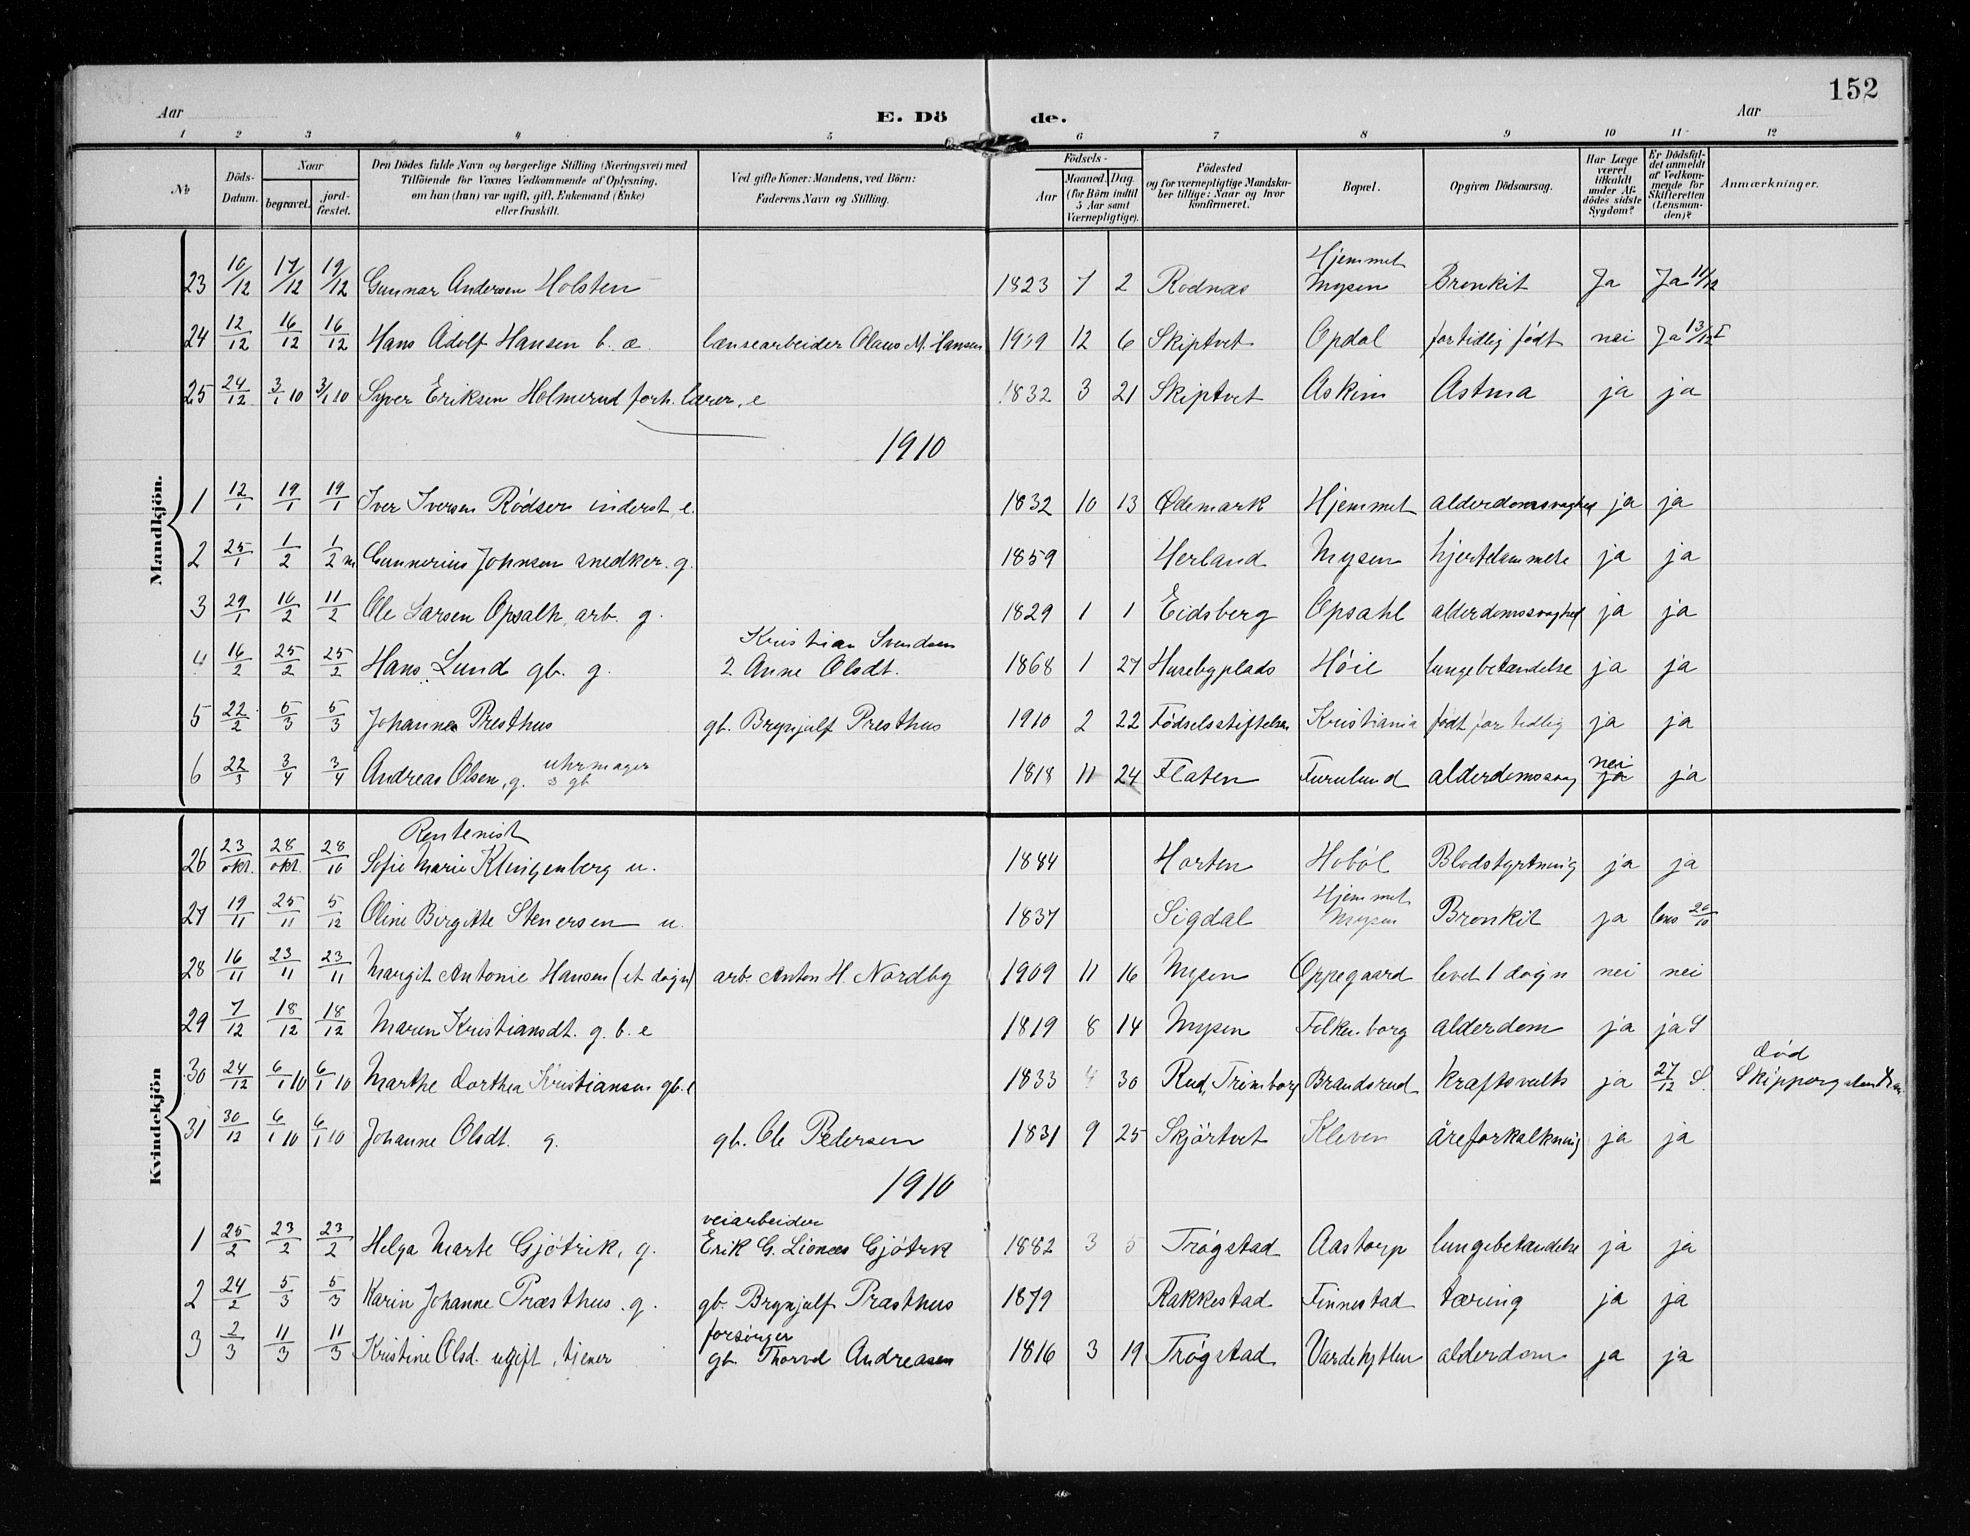 152
Aar E. Dö de. Aar
1 2 3 4 5 6 7 8 9 10 11 12
No
Döds-Datum.
Naar
begravet.
jord-fæstet.
Den Dödes fulde Navn og borgerlige Stilling (Næringsvei) med
Tilföiende for Voxnes Vedkommende af Oplysning,
om han (hun) var ugift, gift, Enkemand (Enke)
eller fraskilt.
Ved gifte Koner: Mandens, ved Börn:
Faderens Navn og Stilling.
Födsels-
Aar
Maaned. Dag.
(for Börn indtil
5 Aar samt
Værnepligtige).
Födested
og for værnepligtige Mandska-
ber tillige: Naar og hvor
konfirmeret.
Bopæl.
Opgiven Dödsaarsag.
Har Læge
været
tilkaldt
under Af-
dödes sidste
Sygdom?
Er Dödsfal-
det anmeldt
af Vedkom-
mende for
Skifteretten
(Lensman-
den)?
Anmærkninger.
Mandkjön.
23 10/12 17/12 19/12 Gunnar Andersen Holsten 1823 7 2 Rodnæs Hjemmet Mysen Bronkit Ja Ja 11/12
24 12/12 16/12 16/12 Hans Adolf Hansen b. æ. lænsearbeider Olaus M. Hansen 1909 12 6 Skiptvet Opdal for tidlig født nei Ja 13/12
25 24/12 3/1 10 3/1 10 Syver Eriksen Holmerud forh. lærer, e 1832 3 21 Skiptvet Askim Astma ja ja
1910
1 12/1 19/1 19/1 Iver Iversen Rødsen inderst, e. 1832 10 13 Ødemark Hjemmet alderdomssvaghed ja ja
2 25/1 1/2 1/2 m Gunnerius Johnsen snedker. g. 1859 Herland Mysen hjertelammelse ja ja
3 29/1 10/2 11/2 Ole Larsen Opsalh, arb. g. 1829 1 1 Eidsberg Opsahl alderdomssvaghed ja ja
4 16/2 25/2 25/2 Hans Lund gb. g. Kristian Svendsen 2 Anne Olsdt. 1868 1 27 Husebyplads Høie lungebetændelse ja ja
5 22/2 5/3 5/3 Johannes Presthus gb. Brynjulf Presthus 1910 2 22 Fødselsstiftelsen Kristiania født for tidlig ja ja
6 22/3 3/4 3/4 Andreas Olsen, g. uhrmager 3 gb 1818 11 24 Flaten Furulund alderdomssvag nei ja ja
Kvindekjön
26 23/okt. 28/okt. 28/10 Rentenist Sofie Marie Klingenberg u. 1884 Horten Hobøl Blodstyrtning ja ja
27 19/11 25/11 5/12 Oline Birgitte Stenersen u. 1837 Sigdal Hjemmet Mysen Bronkit ja lens 20/10
28 16/11 23/11 23/11 Margit Antonie Hansen (et døgn) arb. Anton H. Nordby 1909 11 16 Mysen Oppegaard levet 1 døgn nei nei
29 7/12 18/12 18/12 Maren Kristiansdt. g. b. e 1819 8 14 Mysen Folkenborg alderdom ja ja S
30 24/12 6/1 10 6/1 10 Marthe Dorthea Kristiansen gb. e 1833 4 30 Rud, Trømborg Brandsrud kraftsvulst ja 27/12 S. død
31 30/12 6/1 10 6/1 10 Johanne Olsdt. g. gb. Ole Pedersen 1831 9 25 Skjørtvet Kleven åreforkalkning ja ja
1910
1 25/2 23/2 23/2 Helga Marte Gjøtrik, g. veiarbeider Erik G. Lionæs Gjøtrk 1882 3 5 Trøgstad Aastorp lungebetændelse ja ja
2 24/2 5/3 5/3 Karin Johanne Præsthus. g. gb. Brynjulf Præsthus 1879 Rakkestad Finnestad tæring ja ja
3 2/3 11/3 11/3 Kristine Olsd. ugift, tjener forsørger gb. Thorvd Andreasen 1816 3 19 Trøgstad Vardehytten alderdom ja ja